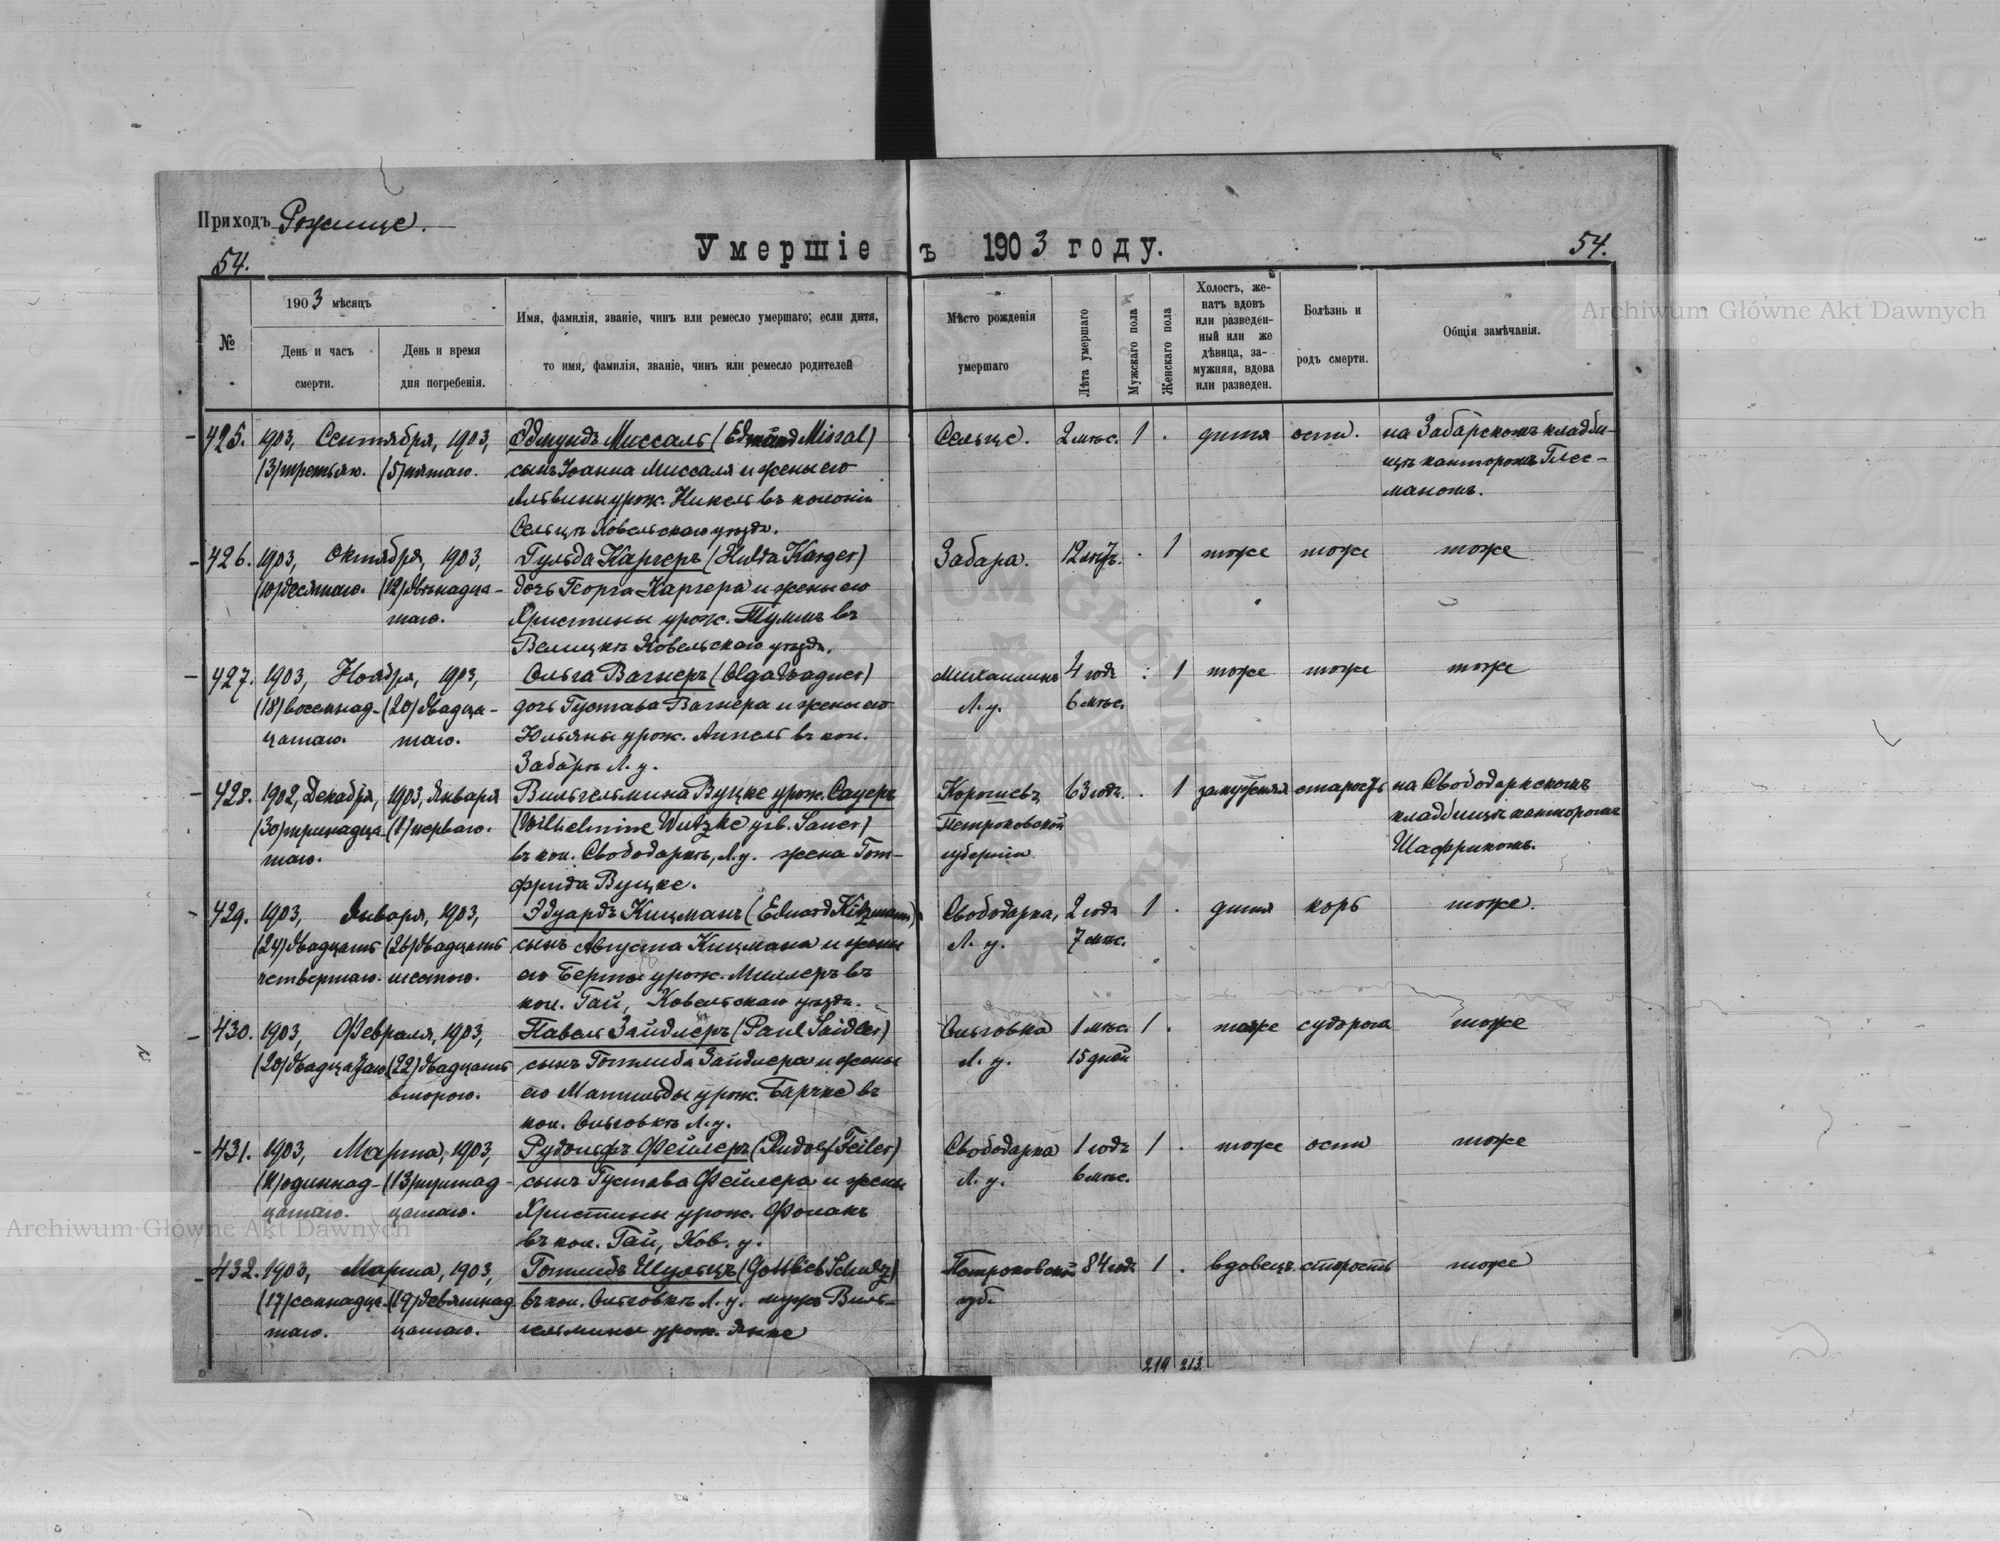 Приходъ Рожище.
Умершіе
ъ 1903 году.
54.
54.
№
1903 мѣсяцъ
День и часъ
смерти.
День и время
дня погребенія.
Имя, фамилія, званіе, чинъ или ремесло умершаго; если дитя,
то имя, фамилія, званіе, чинъ или ремесло родителей
Мѣсто рожденія
умершаго
Лѣта умершаго
Мужскаго пола
Женскаго пола
Холостъ, же-
натъ вдовъ
или разведен-
ный или же
дѣвица, за-
мужняя, вдова
или разведен.
Болѣзнь и
родъ смерти.
Общія замѣчанія.
425. 1903, Сентября, 1903, Эдмундъ Миссаль (Edmund Missal) Сельце. 2 мѣс. 1 . дитя оспа. на Забарскомъ кладби-
(3) третьяго. (5) пятаго. сынъ Іоанна Миссаля и жены его щѣ канторомъ Глес-
Альвины урож. Никель въ колоніи маномъ.
Сельцѣ Ковельскаго уѣзда.
426. 1903, Октября, 1903, Гульда Каргеръ (Hulda Karger) Забара. 12 лѣтъ. . 1 тоже тоже тоже
(10) десятаго. (12) двѣнадца- дочь Георга Каргера и жены его
таго. Христины урож. Тумъ въ
Велицкѣ Ковельскаго уѣзда.
427. 1903, Ноября, 1903, Ольга Вагнеръ (Olga Wagner) Михаилинъ 4 года . 1 тоже тоже тоже
(18) восемнад- (20) двадца- дочь Густава Вагнера и жены его Л. у. 6 мѣс.
цатаго. таго. Юльяны урож. Аппель въ кол.
Забарѣ Л. у.
428. 1902, Декабря, 1903, Января Вильгельмина Вуцке урож. Сауеръ 63 года. . 1 замужняя старость на Свободаркскомъ
(30) тридца (1) перваго. (Wilhelmine Wutzke geb. Sauer) Петроковской кладбищѣ канторомъ
таго. въ кол. Свободаркѣ, Л. у. жена Гот- губерніи Шафрикомъ.
фрида Вуцке.
429. 1903, Января, 1903, Эдуардъ Кицманъ (Eduard Kitzmann) Свободарка, 2 года 1 . дитя корь тоже.
(24) двадцать (26) двадцать сынъ Августа Кицмана и жены Л. у. 7 мѣс.
четвертаго. шестого. его Берты урож. Миллеръ въ
кол. Гай, Ковельскаго уѣзда.
430. 1903, Февраля, 1903, Павелъ Зайдлеръ (Paul Saidler) Ольговка 1 мѣс. 1 . тоже судорога тоже
(20) двадцатаго (22) двадцать сынъ Готлиба Зайдлера и жены Л. у. 15 дней
второго. его Матильды урож. Барчке въ
кол. Ольговкѣ Л. у.
431. 1903, Марта, 1903, Рудольфъ Фейлеръ (Rudolf Feiler) Свободарка 1 годъ 1 . тоже оспа тоже
(11) одиннад- (13) тринад- сынъ Густава Фейлера и жены Л. у. 6 мѣс.
цатаго. цатаго. Христины урож. Фолакъ
въ кол. Гай, Ков. у.
432. 1903, Марта, 1903, Готлибъ Шульцъ (Gottlieb Schulz) Петроковской 84 года 1 . вдовецъ старость тоже
(17) семнадца- (19) девятнад въ кол. Ольговкѣ Л. у. мужъ Виль- губ.
таго. цатаго. гельмины урож. Янке
219 213.
Archiwum Główne Akt Dawnych
Archiwum Główne Akt Dawnych